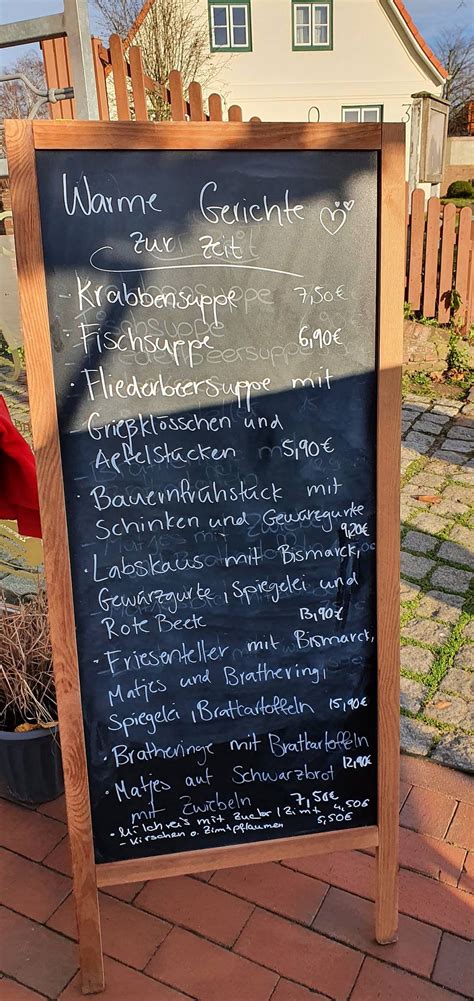 Warme Gerichte
zur Zeit
- Krabbensuppe 7,50€
· Fischsuppe 6,90€
· Fliederbeersuppe mit
Grießklösschen und
Apfelstücken 5,90€
· Bauernfrühstück mit
Schinken und Gewürzgurke
9,20€
· Labskaus mit Bismarck,
Gewürzgurke, Spiegelei und
Rote Beete 13,90€
· Friesenteller mit Bismarck,
Matjes und Brathering,
Spiegelei, Bratkartoffeln 15,90€
· Bratheringe mit Bratkartoffeln
12,90€
· Matjes auf Schwarzbrot
mit Zwiebeln 7,50€
· Milchreis mit Zucker / Zimt 4,50€
- Kirschen o. Zimtpflaumen 5,50€